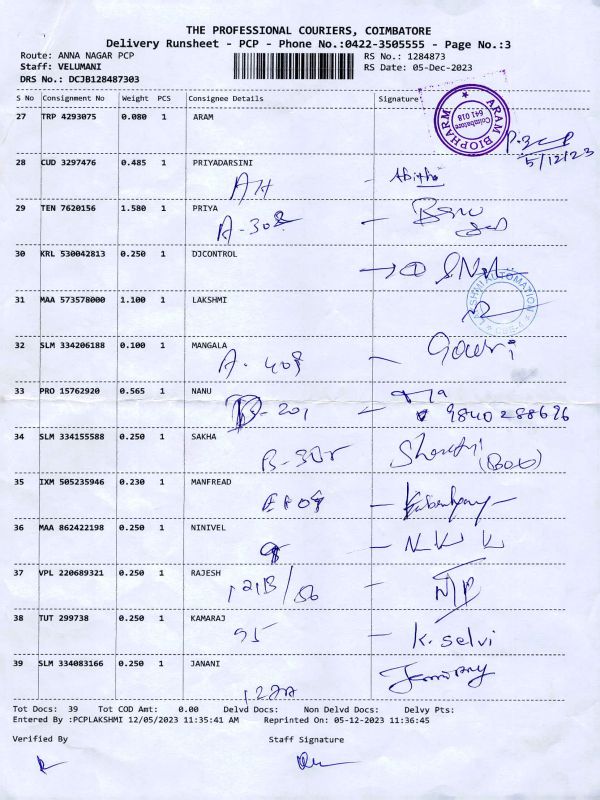 THE PROFESSIONAL COURIERS, COIMBATORE
Delivery Runsheet - PCP - Phone No.:0422-3505555 - Page No.:3
Route: ANNA NAGAR PCP RS No.: 1284873
Staff: VELUMANI RS Date: 05-Dec-2023
DRS No.: DCJB128487303
S No Consignment No Weight PCS Consignee Details Signature
27 TRP 4293075 0.080 1 ARAM
ARAM BIOPHARM
Coimbatore
641 018
5/12/23
28 CUD 3297476 0.485 1 PRIYADARSINI
29 TEN 7620156 1.580 1 PRIYA
A-308
30 KRL 530042813 0.250 1 DJCONTROL
31 MAA 573578000 1.100 1 LAKSHMI
AUTOMATION
32 SLM 334206188 0.100 1 MANGALA
A. 408 - Gowri
33 PRO 15762920 0.565 1 NANU
B-201
9840288696
34 SLM 334155588 0.250 1 SAKHA
35 IXM 505235946 0.230 1 MANFREAD
36 MAA 862422198 0.250 1 NINIVEL
37 VPL 220689321 0.250 1 RAJESH
38 TUT 299738 0.250 1 KAMARAJ
95 - K. Selvi
39 SLM 334083166 0.250 1 JANANI
Tot Docs: 39 Tot COD Amt: 0.00 Delvd Docs: Non Delvd Docs: Delvy Pts:
Entered By :PCPLAKSHMI 12/05/2023 11:35:41 AM Reprinted On: 05-12-2023 11:36:45
Verified By Staff Signature